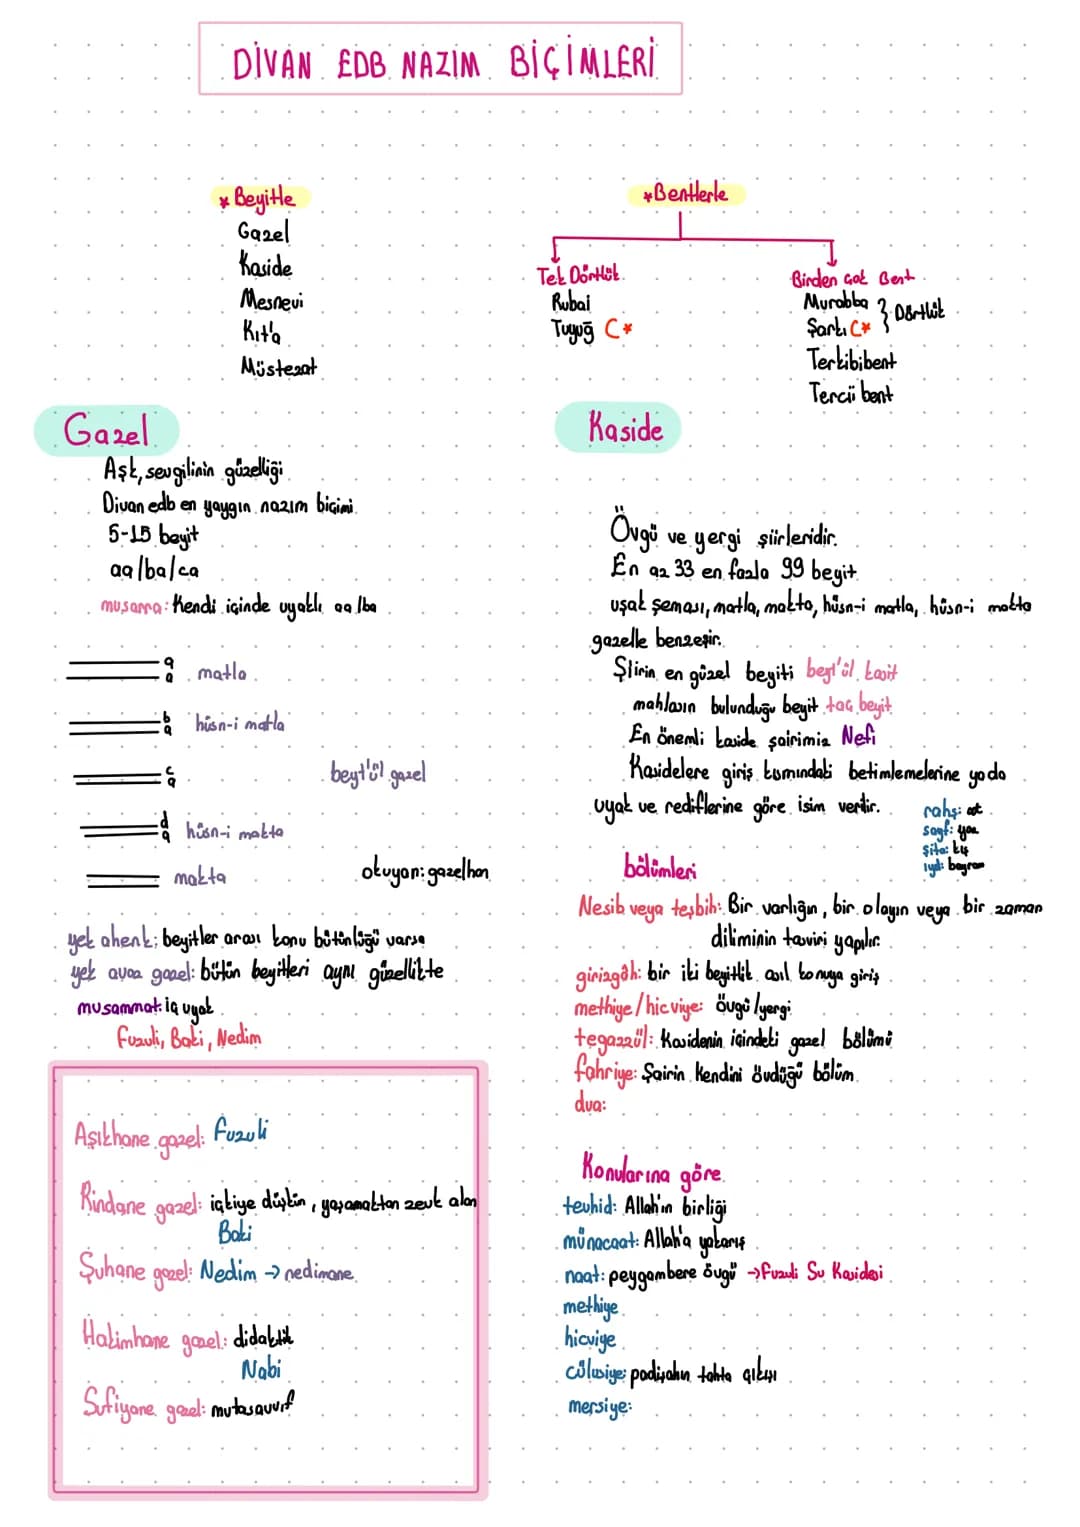 DİVAN EDB NAZIM BİÇİMLERİ
* Beyitle
Gazel
Kaside
Mesnevi
Kıt'a
Müstezat
* Bentlerle
Tek Dörtlük
Rubai
Tuyuğ C*
Birden çok Bent
Murabba
Şarkı C* } Dörtlük
Terkibibent
Tercii bent
Gazel
Aşk, sevgilinin güzelliği
Divan edb en yaygın nazım biçimi
5-15 beyit
aa/ba/ca
musarra: Kendi içinde uyaklı aa/ba
a
a matla
b
a hüsn-i matla
c
a
beyt'ül gazel
d
a hüsn-i makta
makta
okuyan: gazelhan
yek ahenk: beyitler arası konu bütünlüğü varsa
yek avaz gazel: bütün beyitleri aynı güzellikte
musammat: iç uyak
Fuzuli, Baki, Nedim
Aşıkhane gazel: Fuzuli
Rindane gazel: içkiye düşkün, yaşamaktan zevk alan
Baki
Şuhane gazel: Nedim → nedimane
Hakimhane gazel: didaktik
Nabi
Sufiyane gazel: mutasavvıf
Kaside
Övgü ve yergi şiirleridir.
En az 33 en fazla 99 beyit
uşak şeması, matla, makta, hüsn-i matla, hüsn-i makta
gazelle benzeşir.
Şiirin en güzel beyiti beyt'ül kasit
mahlasın bulunduğu beyit tac beyit
En önemli kaside şairimiz Nefi
Kasidelere giriş kısmındaki betimlemelerine ya da
uyak ve rediflerine göre isim verilir.
rahş: at
sayf: yaz
şita: kış
ıyd: bayram
bölümleri
Nesib veya teşbih: Bir varlığın, bir olayın veya bir zaman
diliminin tasviri yapılır.
girizgâh: bir iki beyitlik asıl konuya giriş
methiye/hicviye: övgü/yergi
tegazzül: Kasidenin içindeki gazel bölümü
fahriye: Şairin kendini övdüğü bölüm
dua:
Konularına göre
tevhid: Allah'ın birliği
münacaat: Allah'a yakarış
naat: peygambere övgü → Fuzuli Su Kasidesi
methiye
hicviye
cülusiye: padişahın tahta çıkışı
mersiye: